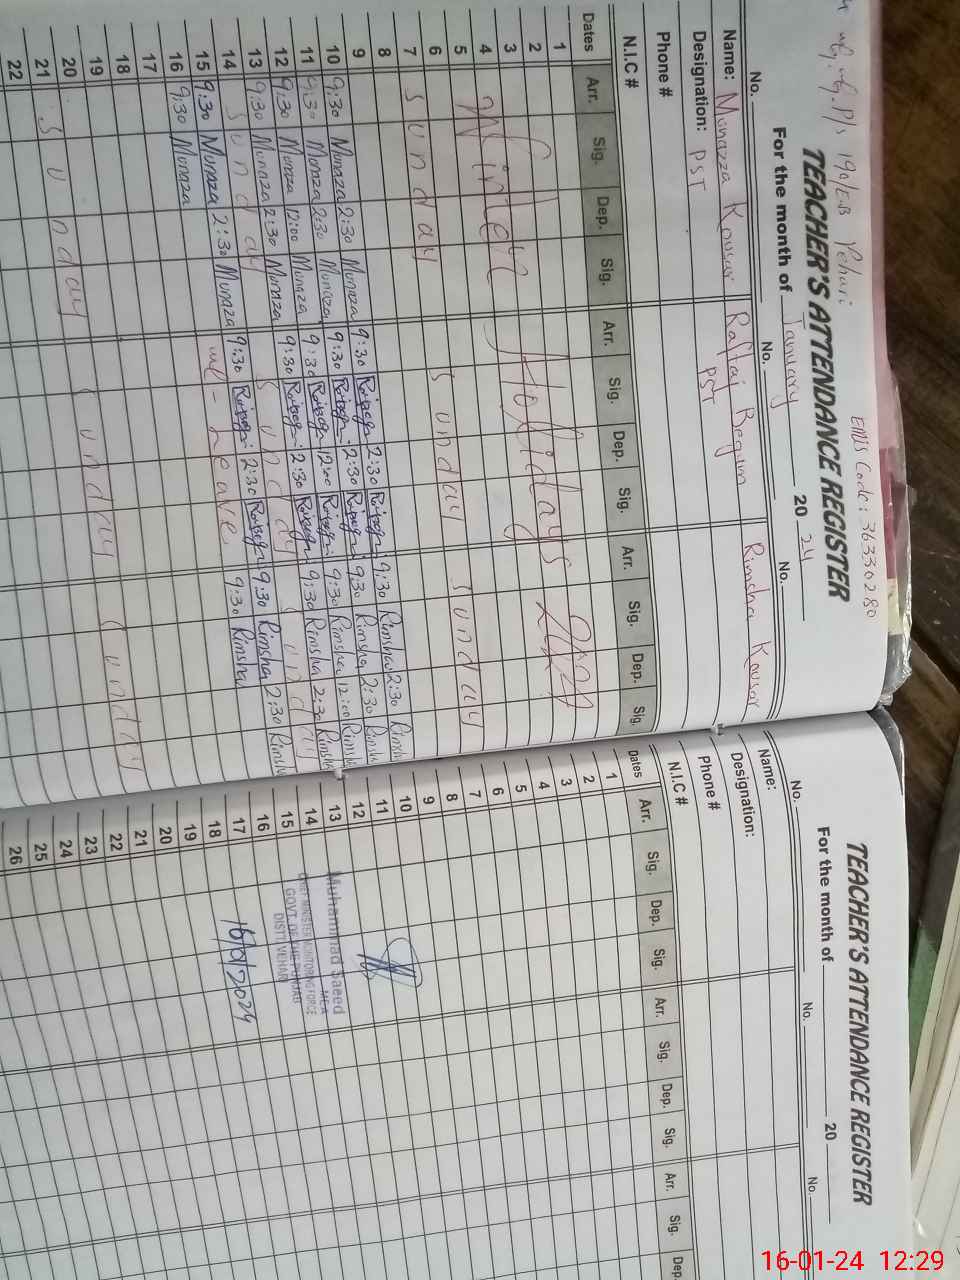 P/S 190/EB Vehari
EMIS Code: 36330280
TEACHER'S ATTENDANCE REGISTER
For the month of January 20 24
No. No. No.
Name: Munazza Kousar Raftaj Begum Rimsha Kousar
Designation: PST PST
Phone #
N.I.C #
Dates Arr. Sig. Dep. Sig. Arr. Sig. Dep. Sig. Arr. Sig. Dep. Sig.
1
2
3
4
5
6
7
Winter Holidays
Sunday Sunday Sunday
8
9
10 9:30 Munaza 2:30 Munaza 9:30 2:30 9:30 Rimsha 2:30 Rimsha
11 9:30 Munaza 2:30 Munaza 9:30 2:30 9:30 Rimsha 2:30 Rimsha
12 9:30 Munaza 12:00 Munaza 9:30 12:00 9:30 Rimsha 12:00 Rimsha
13 9:30 Munaza 2:30 Munaza 9:30 2:30 9:30 Rimsha 2:30 Rimsha
14 Sunday Sunday Sunday
15 9:30 Munaza 2:30 Munaza 9:30 2:30 9:30 Rimsha 2:30 Rimsha
16 9:30 Munaza Leave 9:30 Rimsha
17
18
19
20
21 Sunday Sunday Sunday
22
TEACHER'S ATTENDANCE REGISTER
For the month of 20
No. No. No.
Name:
Designation:
Phone #
N.I.C #
Dates Arr. Sig. Dep. Sig. Arr. Sig. Dep. Sig. Arr. Sig. Dep
1
2
3
4
5
6
7
8
9
10
11
12
13
14
15
16
17
18
19
20
21
22
23
24
25
26
Muhammad Saeed
MEA
CHIEF MINISTER MONITORING FORCE
GOVT. OF THE PUNJAB
DISTT. VEHARI
16/01/2024
16-01-24 12:29